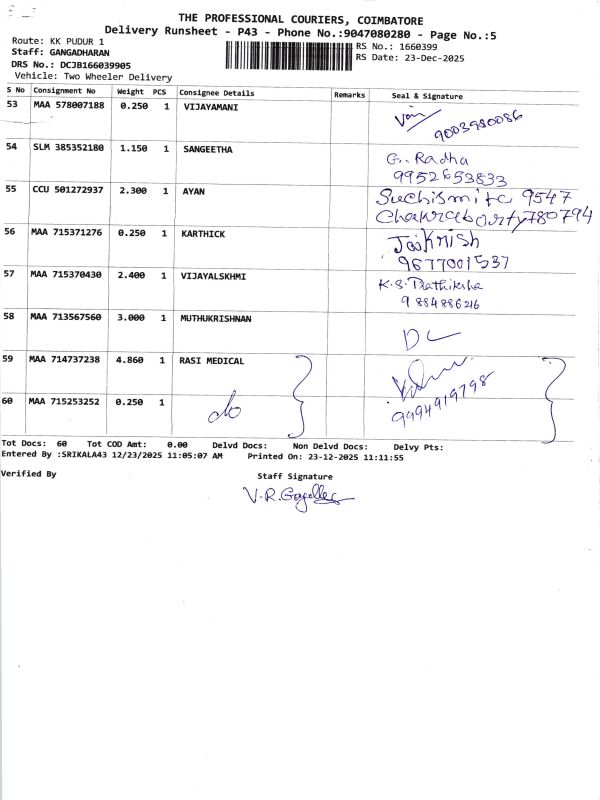 THE PROFESSIONAL COURIERS, COIMBATORE
Delivery Runsheet - P43 - Phone No.:9047080280 - Page No.:5
Route: KK PUDUR 1
Staff: GANGADHARAN
DRS No.: DCJB166039905
Vehicle: Two Wheeler Delivery
RS No.: 1660399
RS Date: 23-Dec-2025
S No Consignment No Weight PCS Consignee Details Remarks Seal & Signature
53 MAA 578007188 0.250 1 VIJAYAMANI
9003980086
54 SLM 385352180 1.150 1 SANGEETHA G. Radha
9952653833
55 CCU 501272937 2.300 1 AYAN Suchismita 9547
Chakraborty 780794
56 MAA 715371276 0.250 1 KARTHICK Jaikrish
9677001537
57 MAA 715370430 2.400 1 VIJAYALSKHMI K.S. Prathiksha
9884886216
58 MAA 713567560 3.000 1 MUTHUKRISHNAN
59 MAA 714737238 4.860 1 RASI MEDICAL
9994919798
60 MAA 715253252 0.250 1 do
Tot Docs: 60 Tot COD Amt: 0.00 Delvd Docs: Non Delvd Docs: Delvy Pts:
Entered By :SRIKALA43 12/23/2025 11:05:07 AM Printed On: 23-12-2025 11:11:55
Verified By Staff Signature